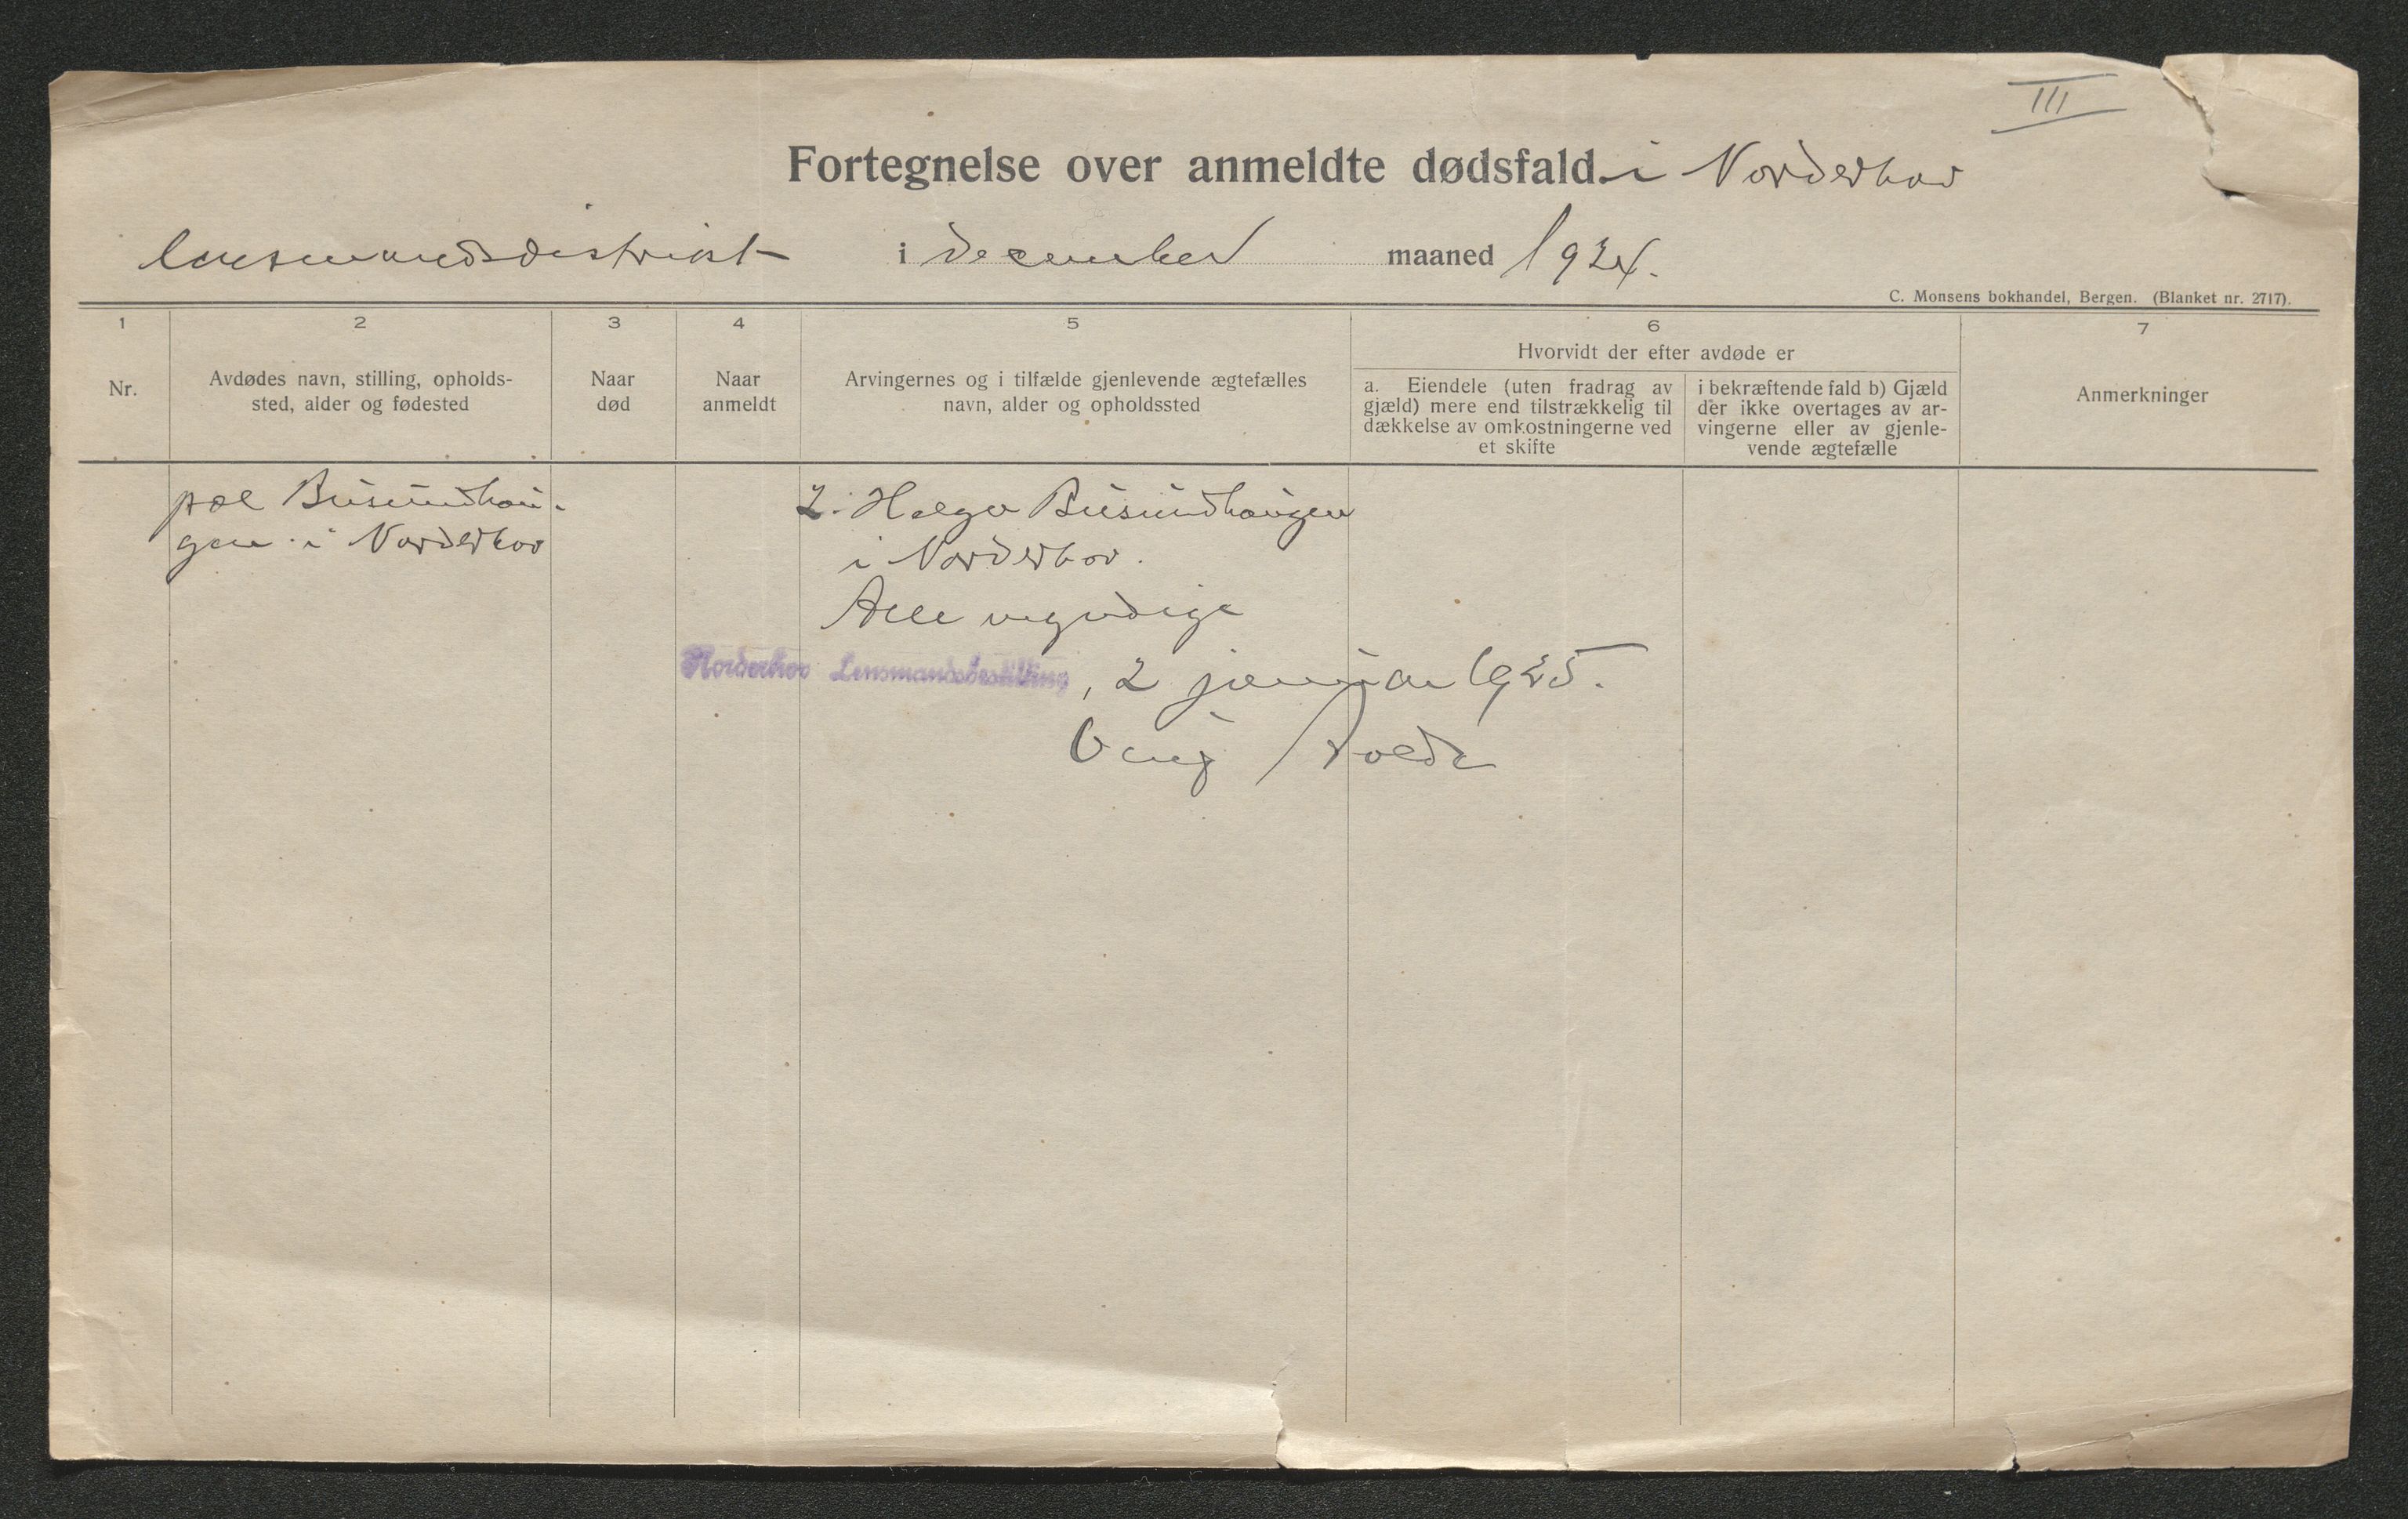 III
Fortegnelse over anmeldte dødsfald i Norderhov
lensmandsdistrikt i december maaned 1924.
C. Monsens bokhandel, Bergen. (Blanket nr. 2717).
1
2
3
4
5
6
7
Nr.
Avdødes navn, stilling, opholds-
sted, alder og fødested
Naar
død
Naar
anmeldt
Arvingernes og i tilfælde gjenlevende ægtefælles
navn, alder og opholdssted
Hvorvidt der efter avdøde er
a. Eiendele (uten fradrag av
gjæld) mere end tilstrækkelig til
dækkelse av omkostningerne ved
et skifte
i bekræftende fald b) Gjæld
der ikke overtages av ar-
vingerne eller av gjenle-
vende ægtefælle
Anmerkninger
pæl Busundhau-
gen i Norderhov
2. Helge Busundhaugen
i Norderhov.
Alle myndige
Norderhov Lensmandsbestilling, 2 januar 1925.